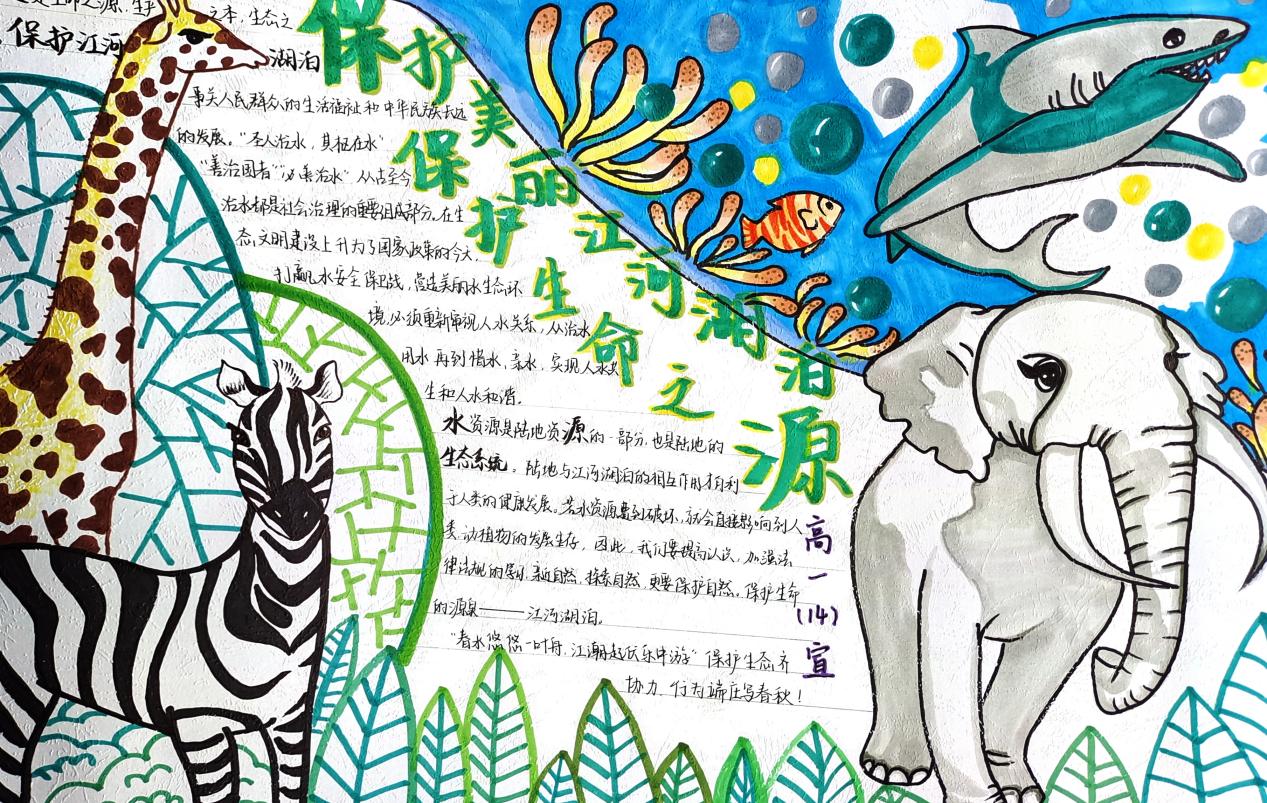 是生命之源, 生
之本, 生态之
保护江河
湖泊
事关人民群众的生活福祉和中华民族长远
的发展。"圣人治水，其枢在水"
"善治国者""必善治水"从古至今
治水都是社会治理的重要组成部分。在生
态文明建设上升为了国家政策的今天，
打赢水安全保卫战，营造美丽水生态环
境，必须重新审视人水关系，从治水
用水再到惜水，亲水，实现人水共
生和人水和谐。
水资源是陆地资源的一部分，也是陆地的
生态系统。陆地与江河湖泊的相互作用有利
于人类的健康发展。若水资源遭到破坏，就会直接影响到人
类、动植物的发展生存，因此，我们要提高认识，加强法
律法规的学习，亲近自然，探索自然，更要保护自然。保护生命
的源泉——江河湖泊。
"春水悠悠一叶舟，江潮起伏乐中游"保护生态齐
协力，行为端庄写春秋！
保护美丽江河湖泊
保护生命之源
高一(14)宣